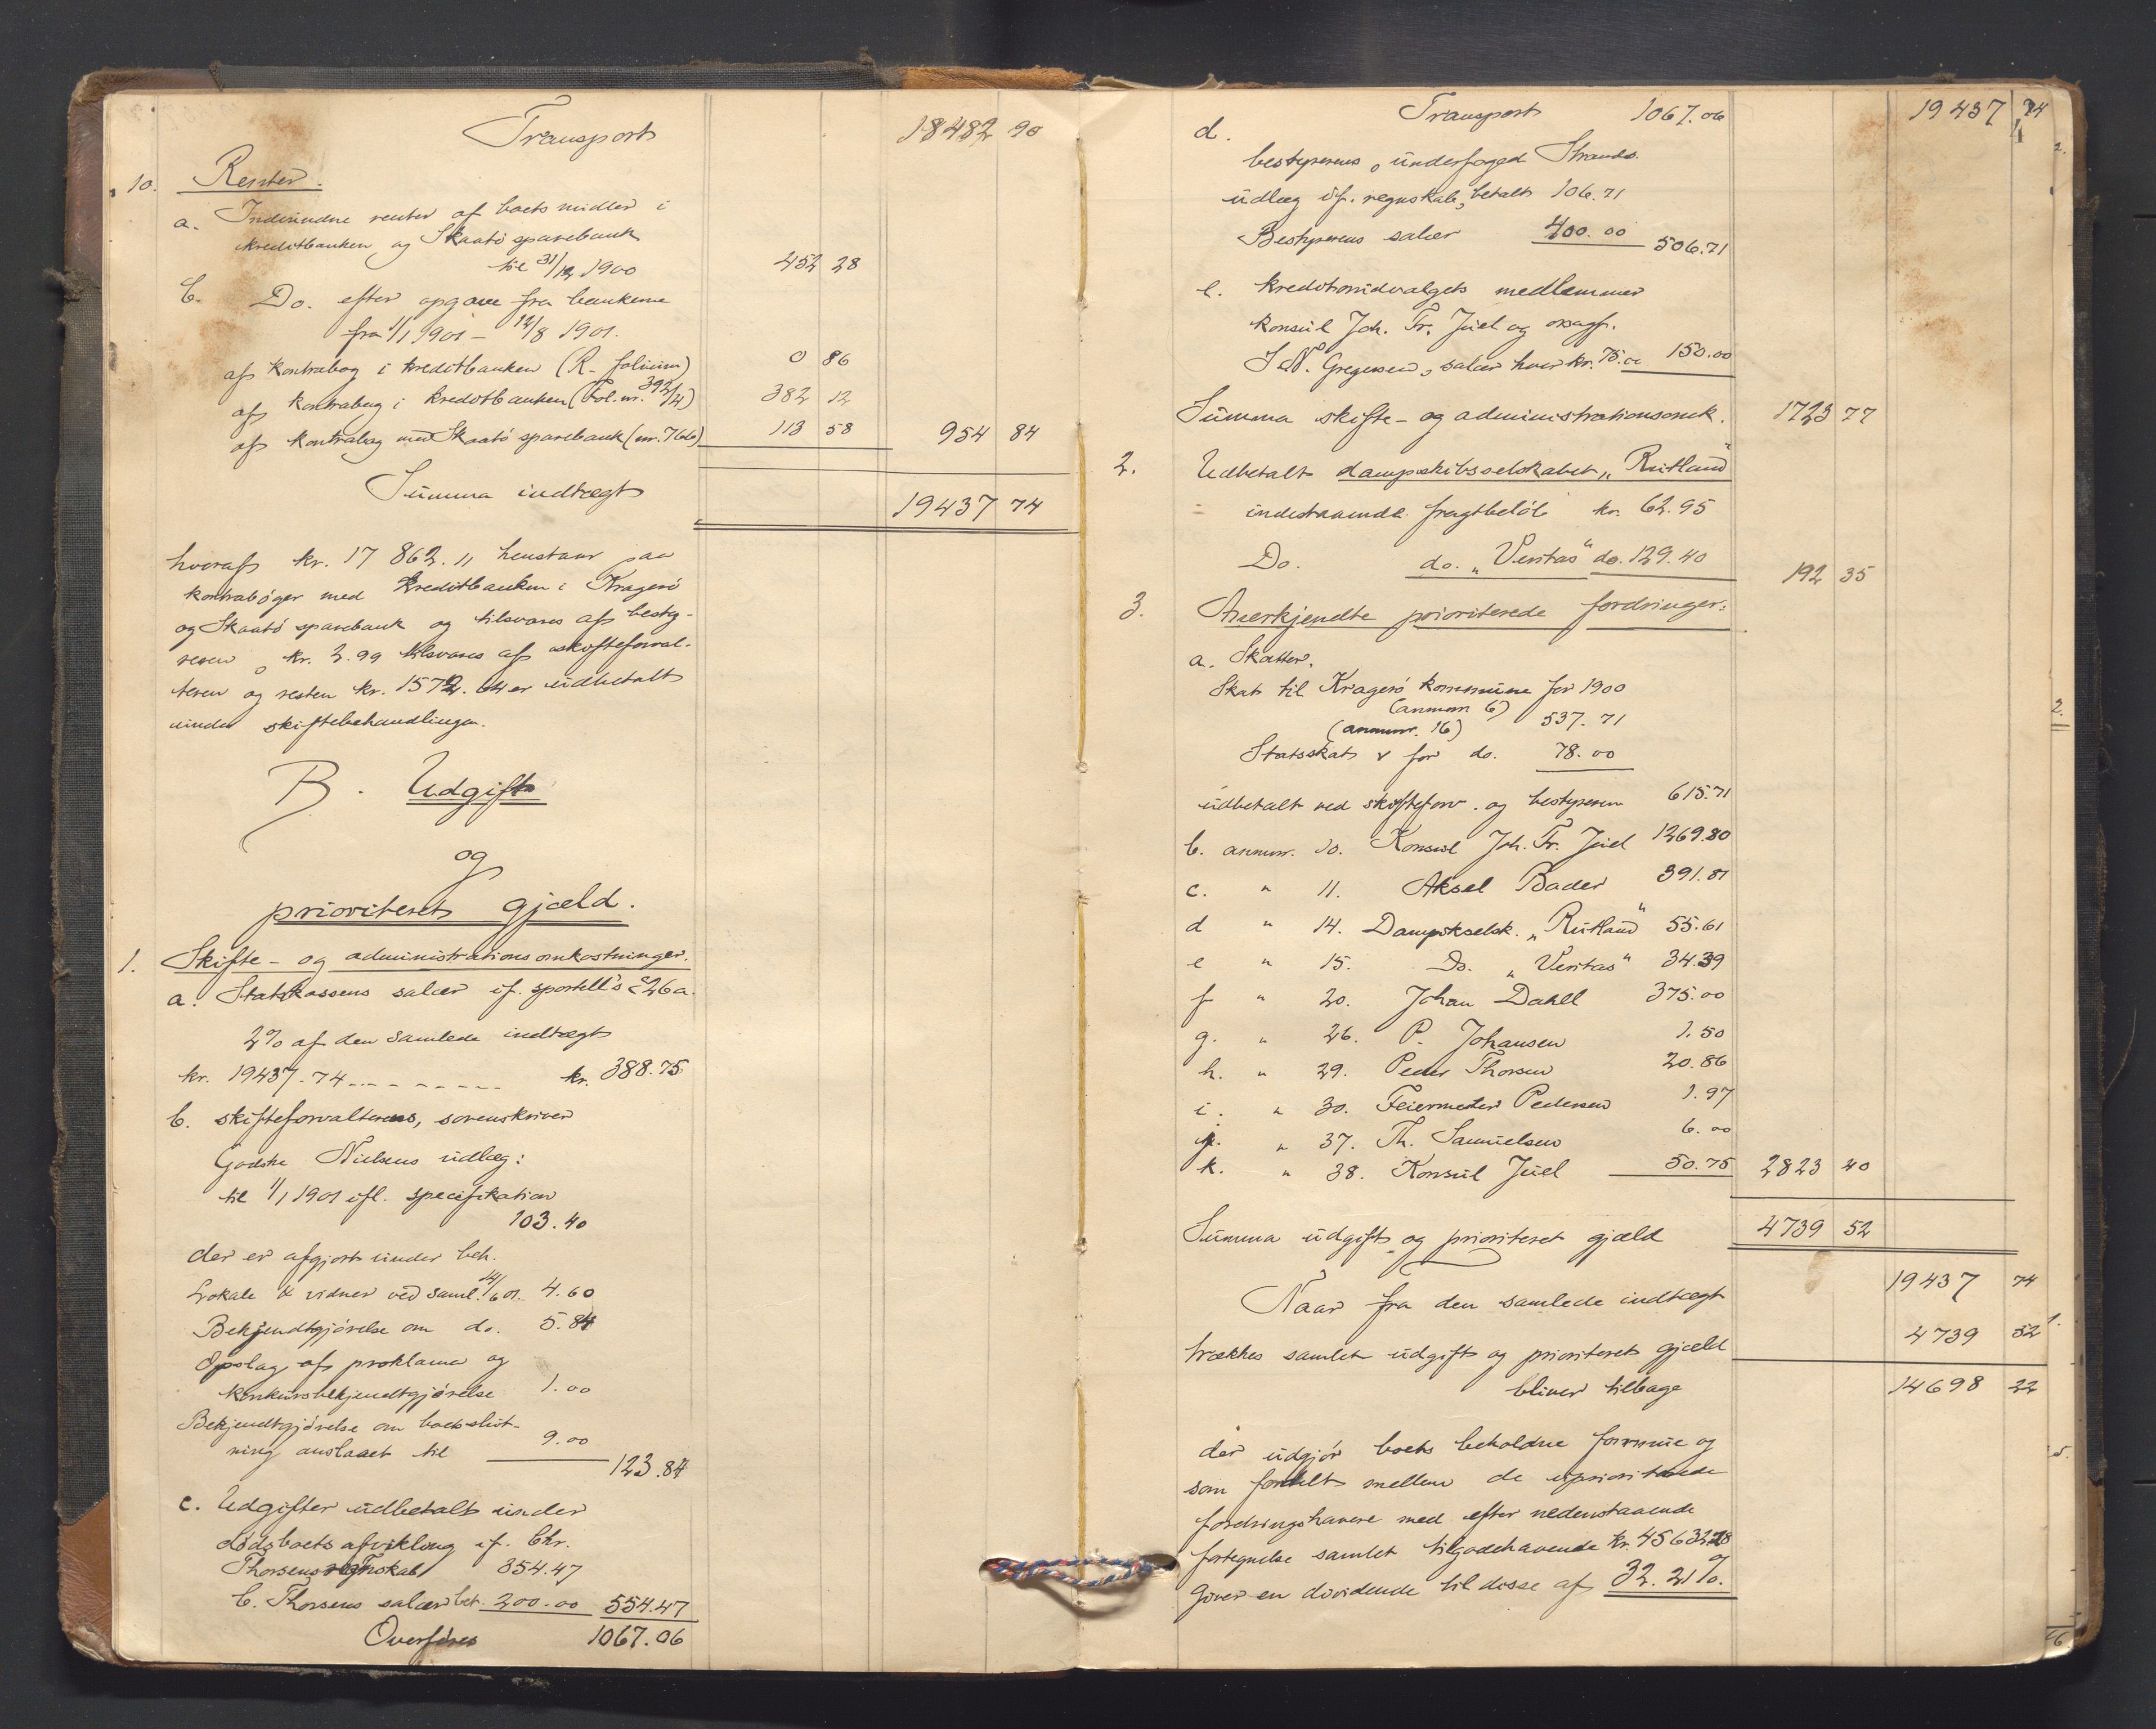 Transport 18482 90
10. Renter.
a. Indvundne renter af boets midler i
kreditbanken og Skaatö sparebank
til 31/12 1900 452 28
b. Do. efter opgave fra bankerne
fra 1/1 1901 - 12/8 1901.
af kontrabog i kreditbanken (R- folium) 0 86
af kontrabog i kreditbanken (Fol. nr. 392/4) 382 12
af kontrabog med Skaatö sparebank (nr. 766) 113 58 954 84
Summa indtægt 19437 74
hvoraf kr. 17 862.11 henstaar paa
kontraböger med Kreditbanken i Kragerö
og Skaatö sparebank og tilsvares af besty-
reren, kr. 2.99 tilsvares af skifteforval-
teren og resten kr. 1572.64 er udbetalt
under skiftebehandlingen.
B. Udgift
og
prioriteret gjæld.
1. Skifte- og administrationsomkostninger.
a. Statskassens salær if. sportell's § 26 a.
2% af den samlede indtægt
kr. 19437.74 - - - - - - - kr. 388.75
b. skifteforvalterens, sorenskriver
Godske Nielsens udlæg:
til 1/1 1901 ifl. specifikation
103.40
der er afgjort under beh.
Lokale & vidner ved saml. 14/6 01. 4.60
Bekjendtgjörelse om do. 5.84
Opslag af proklama og
konkursbekjendtgjörelse 1.00
Bekjendtgjörelse om boets slut-
ning anslaaet til 9.00
123.84
c. Udgifter udbetalt under
dödsboets afvikling if. Chr.
Thorsens regnskab 354.47
C. Thorsens salær bet. 200.00 554.47
Overföres 1067.06
Transport 1067.06 19437 74
d.
bestyrerens, underfoged Strands
udlæg if. regnskab, betalt 106.71
Bestyrerens salær 400.00 506.71
e. kreditorudvalgets medlemmer
konsul Joh. Fr. Juel og osagf.
J. N. Gregersen, salær hver kr. 75.00 150.00
Summa skifte- og administrationsomk. 1723 77
2. Udbetalt dampskibsselskabet „Rutland"
indestaaende fragtbelöb kr. 62.95
Do. do. „Veritas" do. 129.40 192 35
3. Anerkjendte prioriterede fordringer:
a. Skatter.
Skat til Kragerö kommune for 1900
(anmnr. 6) 537.71
(anmnr. 16)
Statsskat v for do. 78.00
udbetalt ved skifteforv. og bestyreren 615.71
b. anmnr. 10. Konsul Joh. Fr. Juel 1269.80
c. " 11. Aksel Bader 391.81
d " 14. Dampskselsk. „Rutland" 55.61
e " 15. Do. „Veritas" 34.39
f " 20. Johan Dahll 375.00
g. " 26. P. Johansen 1.50
h. " 29. Peder Thorsen 20.86
i. " 30. Feiermester Pedersen 1.97
j. " 37. Th. Samuelsen 6.00
k. " 38. Konsul Juel 50.75 2823 40
Summa udgift og prioriteret gjæld 4739 52
Naar fra den samlede indtægt 19437 74
trækkes samlet udgift og prioriteret gjæld 4739 52
bliver tilbage 14698 22
der udgjör boets beholdne formue og
som fordelt mellem de uprioriterede
fordringshavere med efter nedenstaaende
fortegnelse samlet tilgodehavende kr. 45632.28
giver en dividende til disse af 32.21%.